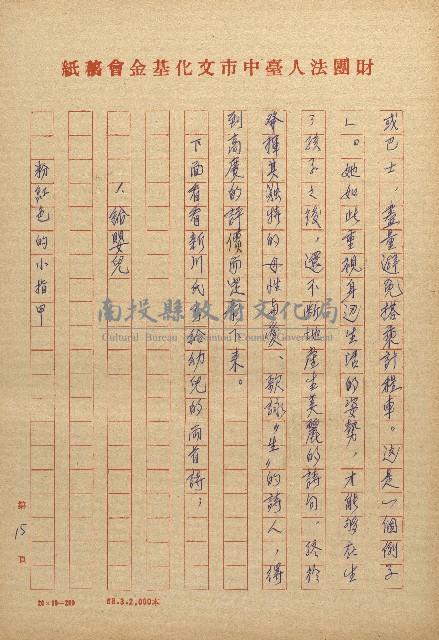 財團法人臺中市文化基金會稿紙
或巴士，盡量避免搭乘計程車。這是一個例子
」。她如此重視身边生活的姿勢，才能夠在生
了孩子之後，還不斷地產生美麗的詩句，終於
發揮其独特的母性与愛、歌詠“生”的詩人，得
到高度的評價而定下來。
下面看看新川氏寫給幼兒的兩首詩；
1. 給嬰兒
粉紅色的小指甲
南投縣政府文化局
Cultural Bureau of Nantou County Government
第 15 頁
20×10—200